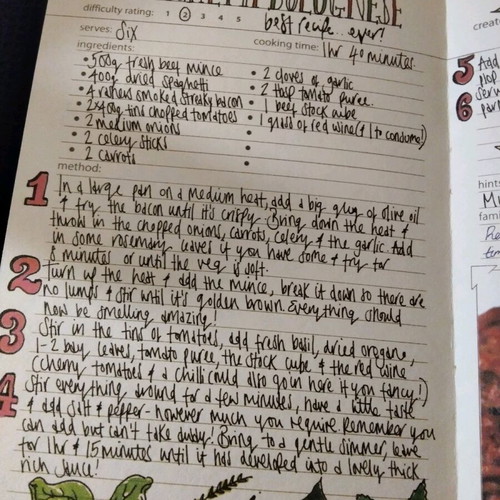 BOLOGNESE
difficulty rating: 1 2 3 4 5
best recipe.. ever!
serves: Six
cooking time: 1hr 40 minutes
ingredients:
• 500g fresh beef mince
• 400g dried spaghetti
• 4 rashers smoked streaky bacon
• 2x400g tins chopped tomatoes
• 2 medium onions
• 2 celery sticks
• 2 carrots
• 2 cloves of garlic
• 2 tbsp tomato puree.
• 1 beef stock cube
• 1 glass of red wine (& 1 to consume!)
method:
1 In a large pan on a medium heat, add a big glug of olive oil
& fry the bacon until it's crispy. Bring down the heat &
throw in the chopped onions, carrots, celery & the garlic. Add
in some rosemary leaves if you have some & fry for
8 minutes or until the veg is soft.
2 Turn up the heat & add the mince, break it down so there are
no lumps & stir until it's golden brown. Everything should
now be smelling amazing!
3 Stir in the tins of tomatoes, add fresh basil, dried oregano,
1-2 bay leaves, tomato puree, the stock cube & the red wine
(cherry tomatoes & a chilli could also go in here if you fancy!)
4 Stir everything around for a few minutes, have a little taste
& add salt & pepper - however much you require. Remember you
can add but can't take away. Bring to a gentle simmer, leave
for 1hr & 15 minutes until it has developed into a lovely thick
rich sauce!
5 Add
6 serve
hints